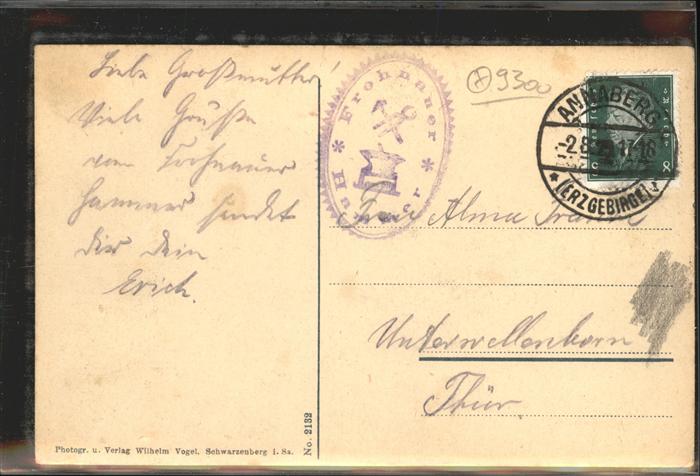 Liebe Großmutter!
Viele Grüße
vom Frohnauer
Hammer sendet
dir dein
Erich.
Photogr. u. Verlag Wilhelm Vogel, Schwarzenberg i. Sa.
No. 2132
* Frohnauer *
9300
ANNABERG
-2.8. 17-18
* (ERZGEBIRGE)
8
Frau Alma
Unterwellenborn
Thür.